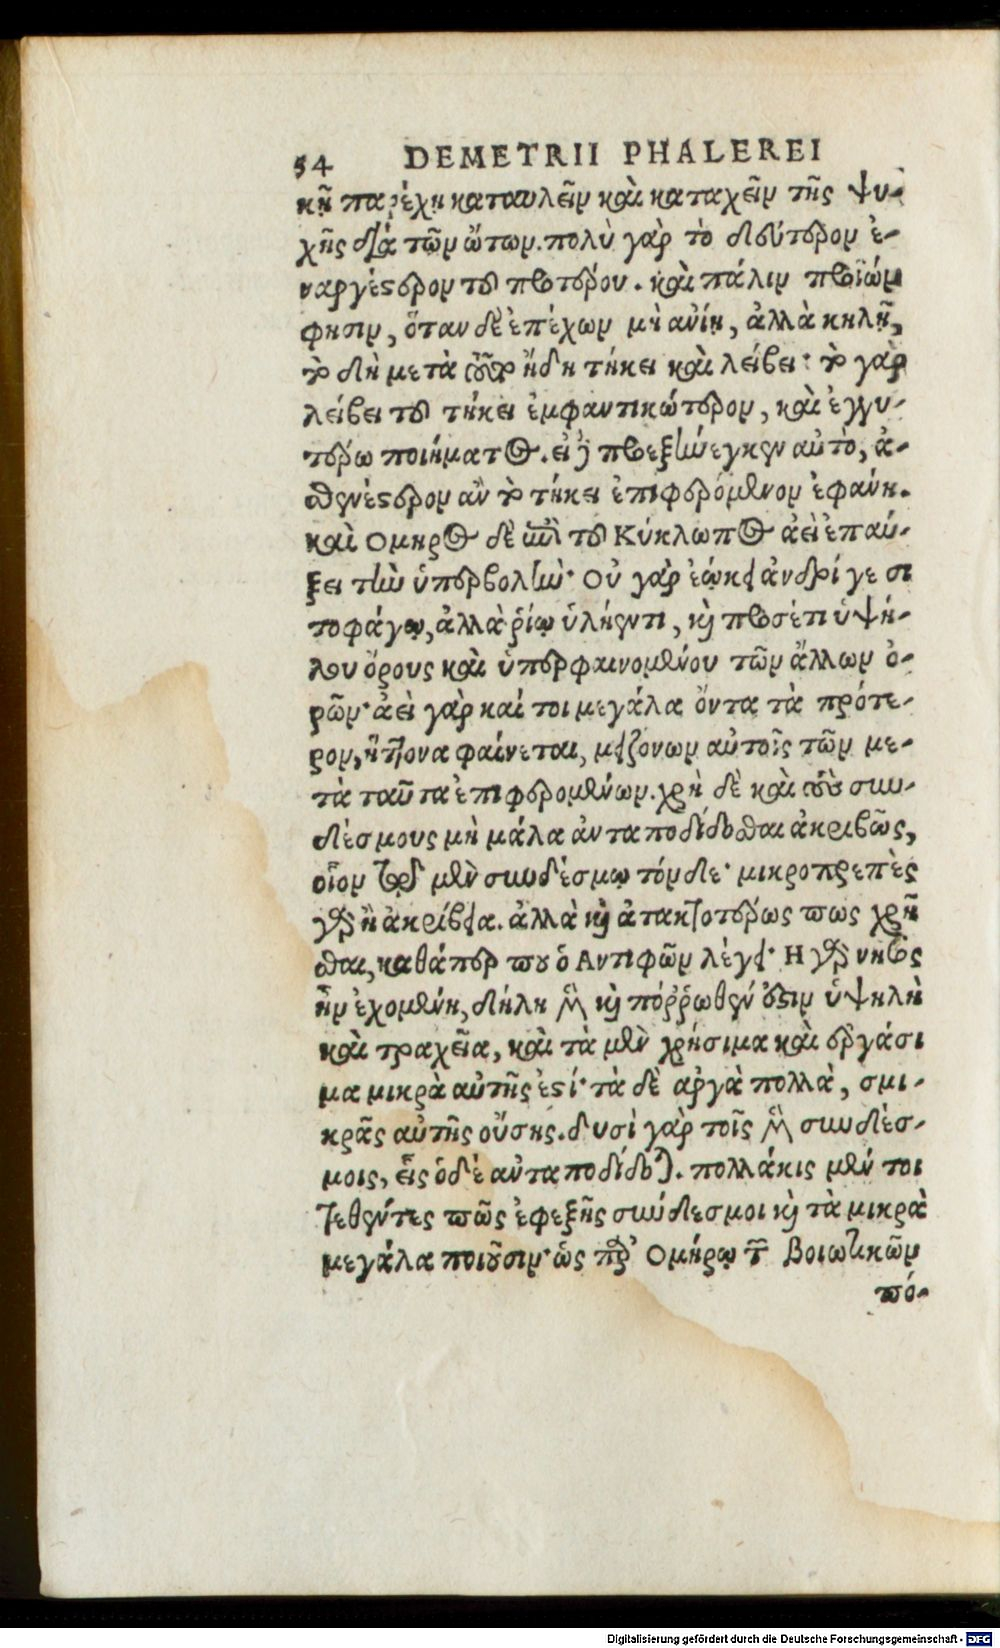 54 DEMETRII PHALEREI
κῇ παρέχῃ καταυλεῖν καὶ καταχεῖν τῆς ψυ-
χῆς διὰ τῶν ὤτων. πολὺ γὰρ τὸ δεύτερον ἐ-
ναργέστερον τοῦ προτέρου. καὶ πάλιν προϊών
φησιν, ὅταν δὲ ἐπέχων μὴ ἀνίῃ, ἀλλὰ κηλῇ,
τὸ δὴ μετὰ τοῦτο ἤδη τήκει καὶ λείβει· τὸ γὰρ
λείβει τοῦ τήκει ἐμφαντικώτερον, καὶ ἐγγυ-
τέρω ποιήματος. εἰ δὲ προεξήνεγκεν αὐτὸ, ἀ-
σθενέστερον ἂν τὸ τήκει ἐπιφερόμενον ἐφάνη.
καὶ Ομηρος δὲ ἐπὶ τοῦ Κύκλωπος ἀεὶ ἐπαύ-
ξει τὴν ὑπερβολὴν· Οὐ γὰρ ἐῴκει ἀνδρί γε σι
τοφάγῳ, ἀλλὰ ῥίῳ ὑλήεντι, καὶ προσέτι ὑψή-
λου ὄρους καὶ ὑπερφαινομένου τῶν ἄλλων ὀ-
ρῶν· ἀεὶ γὰρ καί τοι μεγάλα ὄντα τὰ πρότε-
ρον, ἥττονα φαίνεται, μειζόνων αὐτοῖς τῶν με-
τὰ ταῦτα ἐπιφερομένων. χρὴ δὲ καὶ τοὺς συν-
δέσμους μὴ μάλα ἀνταποδίδοσθαι ἀκριβῶς,
οἷον τῷ μὲν συνδέσμῳ τόνδε· μικροπρεπὲς
γὰρ ἡ ἀκρίβεια. ἀλλὰ καὶ ἀτακτοτέρως πως χρῆ
σθαι, καθάπερ που ὁ Αντιφῶν λέγει· Η γὰρ νῆσος
ἣν ἐχομένη, δήλη μὲν καὶ πόῤῥωθεν ἐστιν ὑψηλὴ
καὶ τραχεῖα, καὶ τὰ μὲν χρήσιμα καὶ ἐργάσι
μα μικρὰ αὐτῆς ἐστί· τὰ δὲ ἀργὰ πολλὰ, σμι-
κρᾶς αὐτῆς οὔσης. δυσὶ γὰρ τοῖς μὲν συνδέσ-
μοις, εἷς ὁ δὲ ἀνταποδίδοται. πολλάκις μέν τοι
τεθέντες πῶς ἐφεξῆς σύνδεσμοι καὶ τὰ μικρὰ
μεγάλα ποιοῦσιν· ὡς παρ’ Ομήρῳ τῶν Βοιωτικῶν
πό-
Digitalisierung gefördert durch die Deutsche Forschungsgemeinschaft - DFG